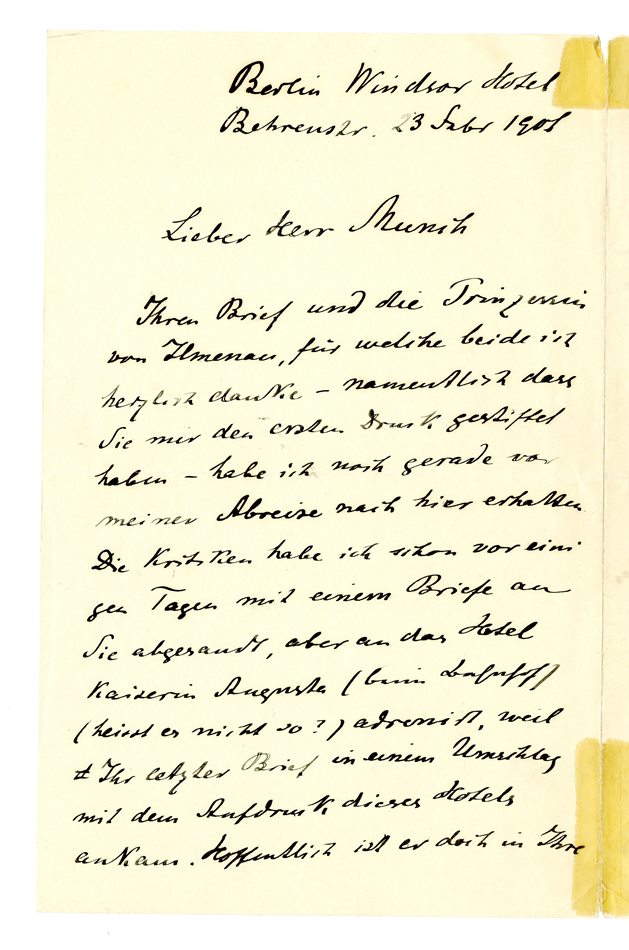 Berlin Windsor Hotel
Behrenstr. 23 Febr 1901
Lieber Herr Munch
Ihren Brief und die Prinzessin
von Ilmenau, für welche beide ich
herzlich danke – namentlich dass
Sie mir den ersten Druck gestiftet
haben – habe ich noch gerade vor
meiner Abreise nach hier erhalten
Die Kritiken habe ich schon vor eini
gen Tagen mit einem Briefe an
Sie abgesandt, aber an das Hotel
Kaiserin Augusta (beim Bahnhof)
(heisst es nicht so?) adressirt, weil
Ihr letzter Brief in einem Umschlag
mit dem Aufdruck dieses Hotels
ankam. Hoffentlich ist er doch in Ihre